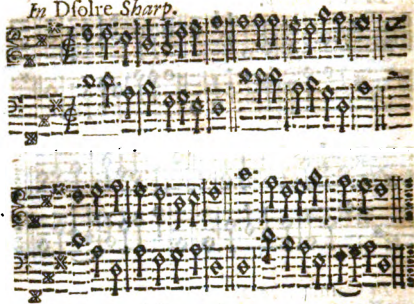 In Dsolre Sharp.